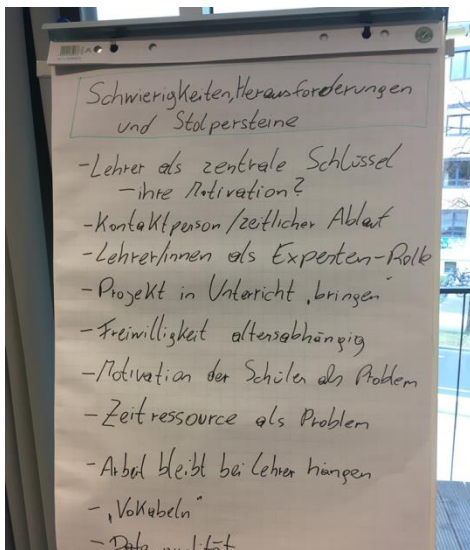 Schwierigkeiten, Herausforderungen
und Stolpersteine
- Lehrer als zentrale Schlüssel
- ihre Motivation?
- Kontaktperson/zeitlicher Ablauf
- Lehrer/innen als Experten-Rolle
- Projekt in Unterricht „bringen"
- Freiwilligkeit altersabhängig
- Motivation der Schüler als Problem
- Zeitressource als Problem
- Arbeit bleibt bei Lehrer hängen
- „Vokabeln"